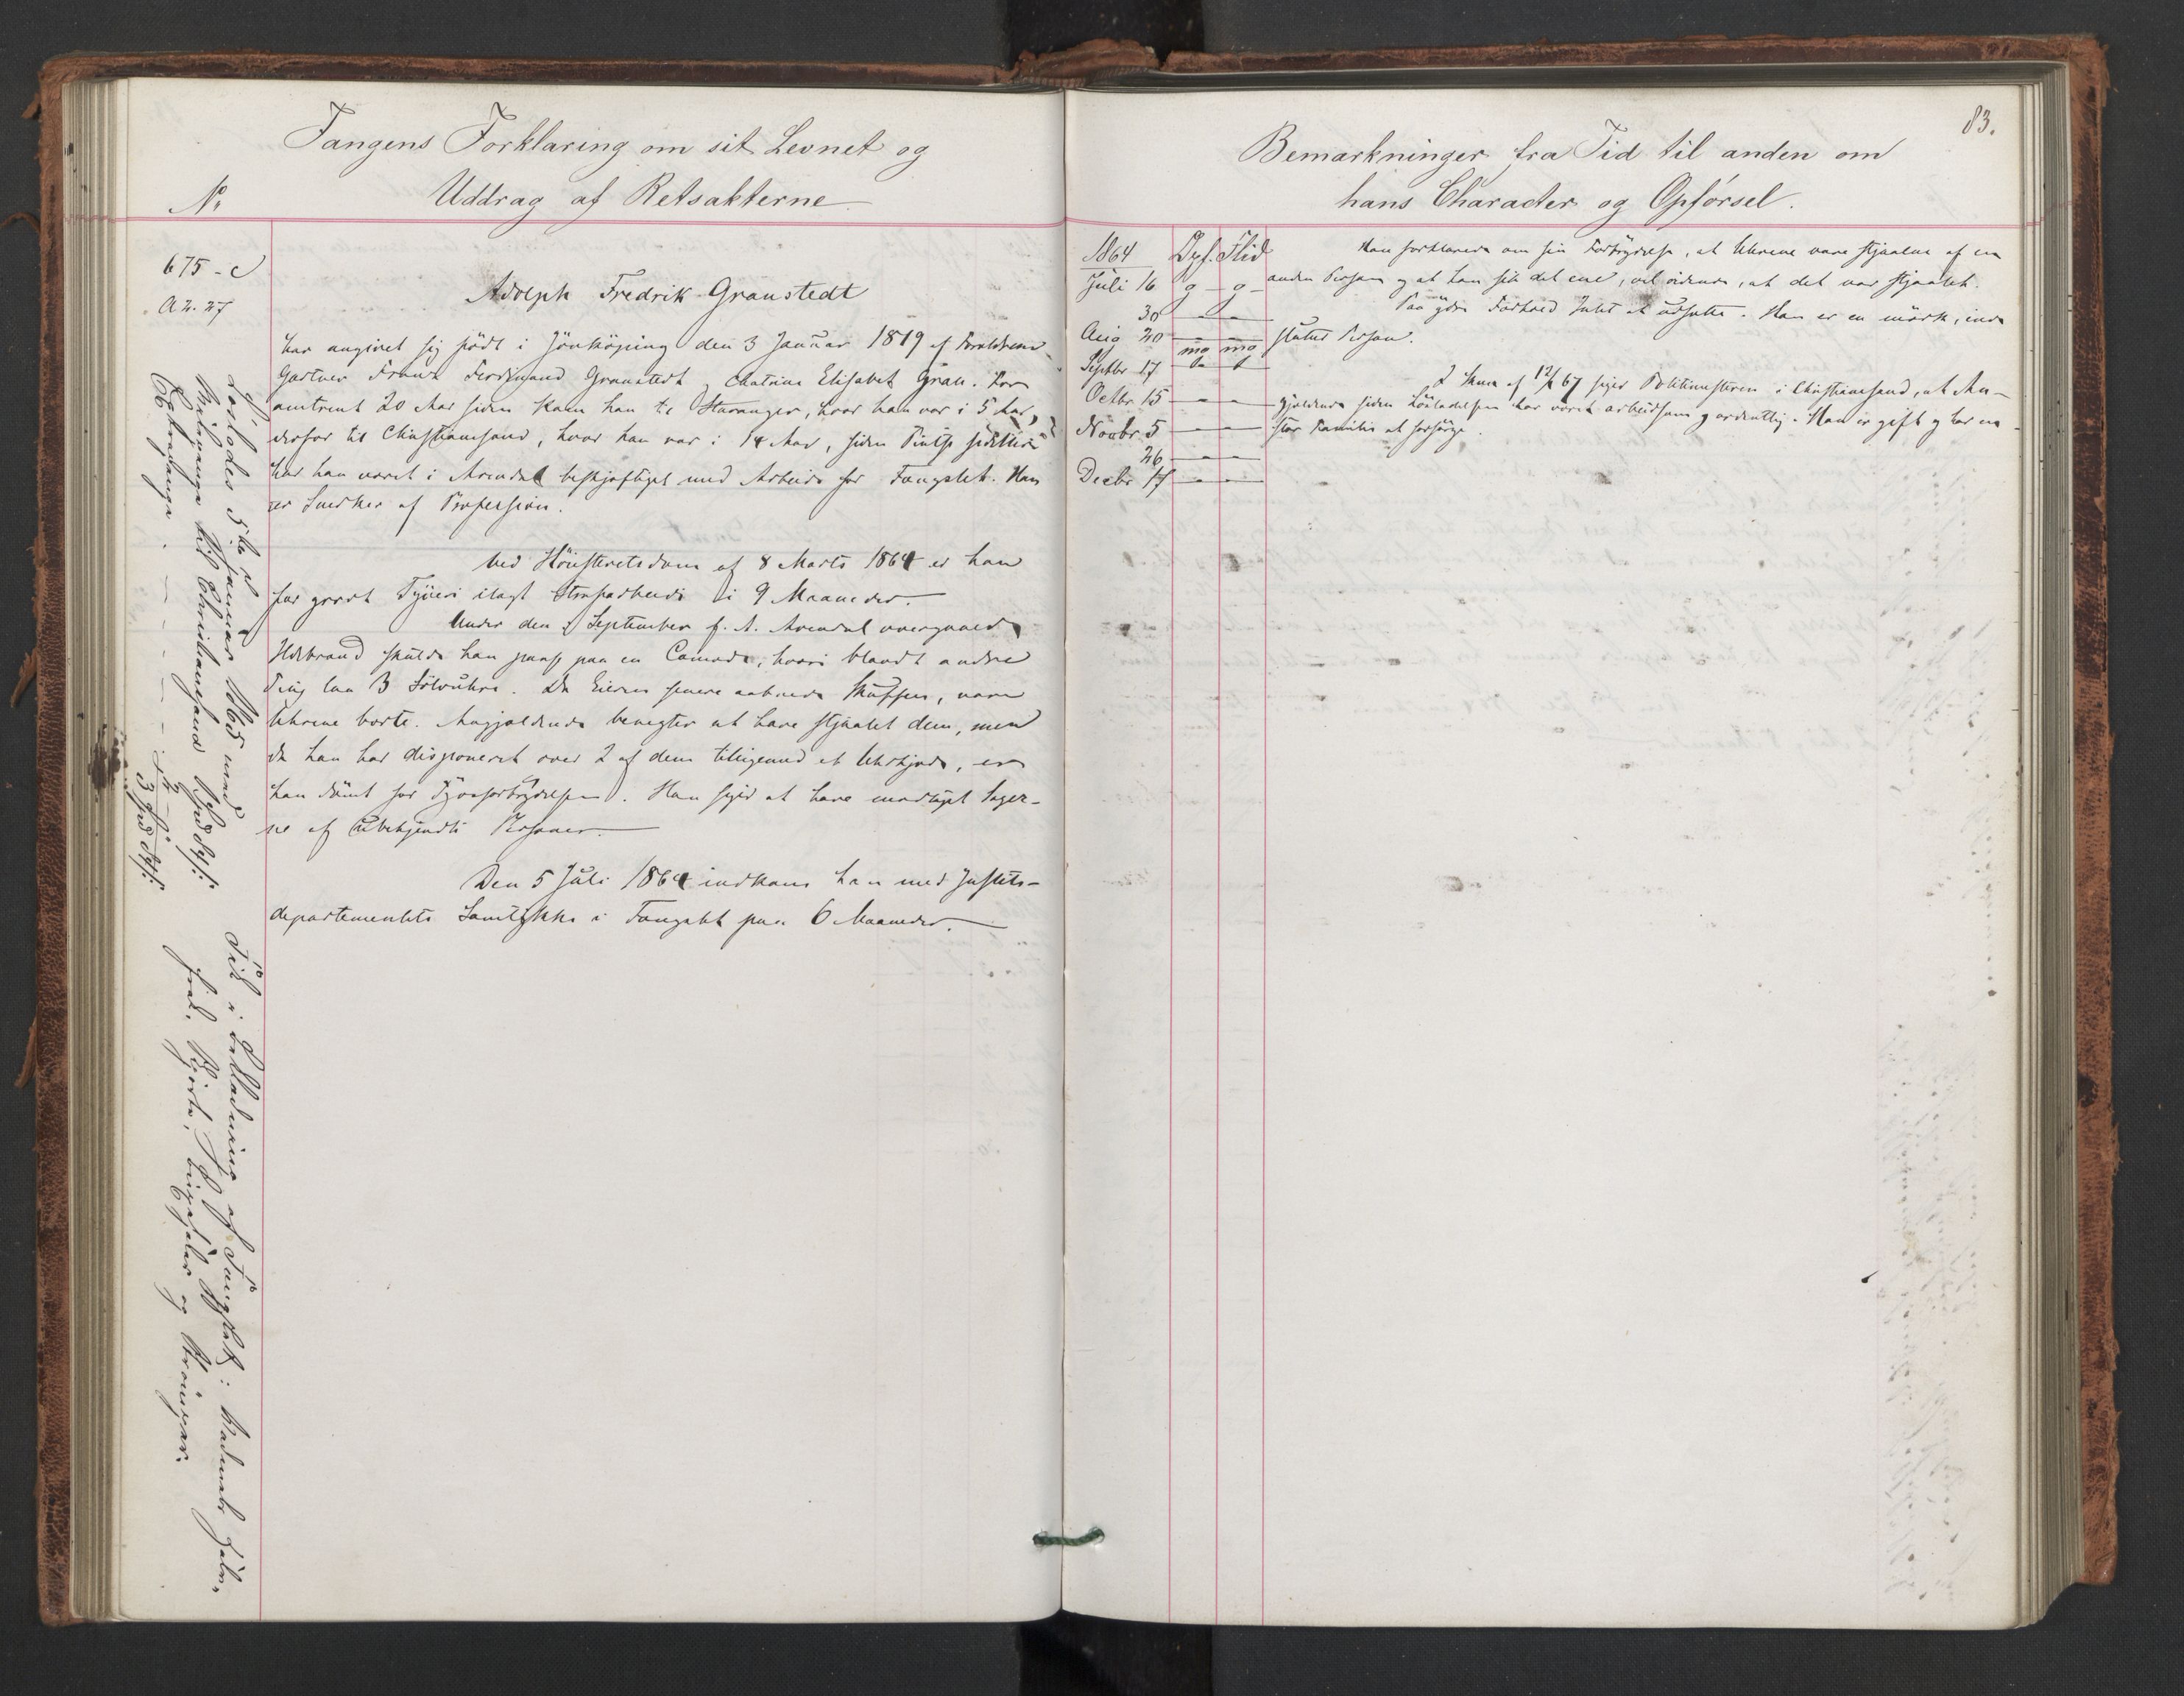 Fangens Forklaring om sit Levnet og
Uddrag af Retsakterne
No
675-c
A2.27
Adolph Fredrik Granstedt
har angivet sig født i Jönköping den 3 Januar 1819 af Forældrene
Gartner Frans Ferdinand Granstedt og Chatrine Elisabet Gran. For
omtrent 20 Aar siden kom han til Stavanger, hvor han var i 5 Aar,
derfor til Christiansand, hvor han var i 14 Aar, siden
har han været i Arendal beskjæftiget med Arbeide for Fængslet. Han
er Snedker af Profession.
Ved Høiesteretsdom af 8 Marts 1864 er han
for groft Tyveri ilagt Strafarbeide i 9 Maaneder.
Under den i September f. A. Arendal overgaaede
Ildebrand skulde han passe paa en Comode, hvori blandt andre
Ting laa 3 Sølvuhre. Da Eieren senere aabnede Skuffen, vare
Uhrene borte. Angjældende benegter at have stjaalet dem, men
da han har disponeret over 2 af dem tilligemed et Uhrkjæde, er
han dømt for Tyvsforbrydelsen. Han siger at have modtaget Sager-
ne af ubekjendte Personer.
Den 5 Juli 1864 indkom han med Justits-
departementets Samtykke i Fangenskab paa 6 Maaneder.
Løslodes 5te Januar 1865 med
til Christiansand
3
Fik i Beklædning af Fængslet:
og Strømper.
83.
Bemærkninger fra Tid til anden om
hans Character og Opførsel.
1864 Opf. Flid
Juli 16 g - g -
30 - -
Aug 20 - -
mg mg
Septbr 17
Octbr 15 - -
Novbr 5 - -
26 - -
Decbr 17 - -
Han forklarede om sin Forbrydelse, at Uhrene vare stjaalne af en
anden Person og at han fik det ene, vel vidende, at det var stjaalet.
Paa hans Forhold Intet at udsætte. Han er en mørk, inde
sluttet Person.
I Skriv. af 12/2 67 siger Politimesteren i Christiansand, at An-
gjældende siden Løsladelsen har været arbeidsom og ordentlig. Han er gift og har en
stor Familie at forsørge.